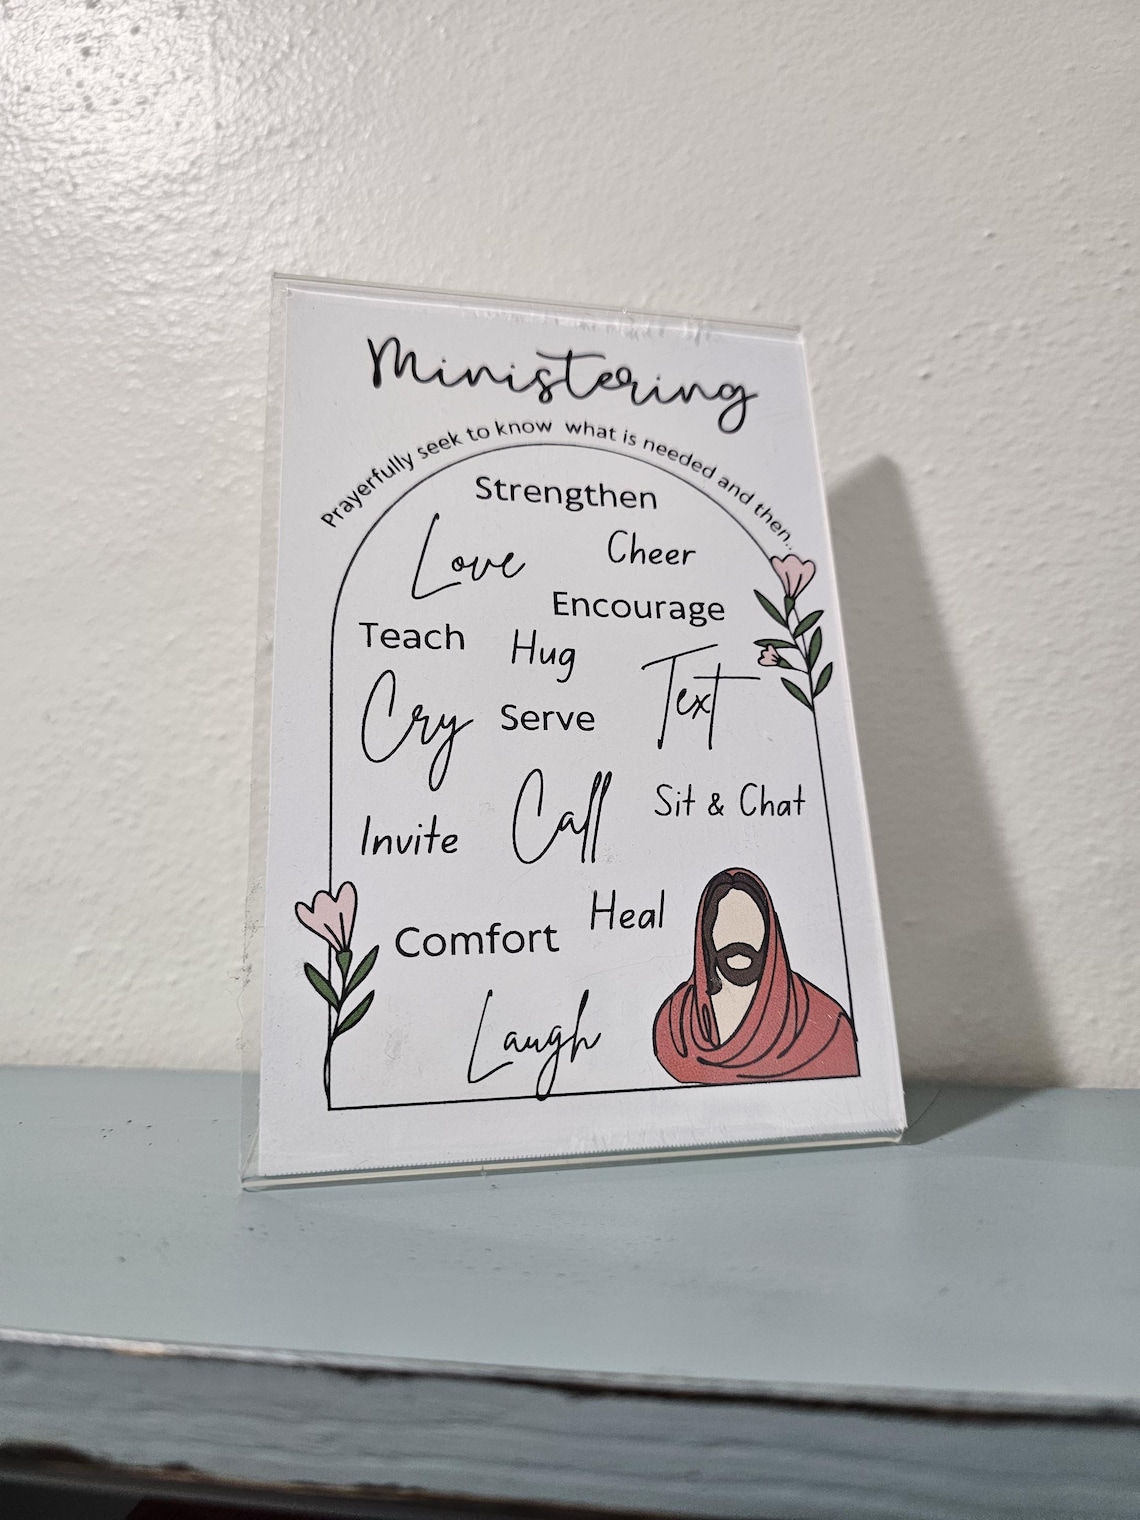 Ministering
Prayerfully seek to know what is needed and then...
Strengthen
Love Cheer
Encourage
Teach Hug
Cry Serve Text
Invite Call Sit & Chat
Comfort Heal
Laugh